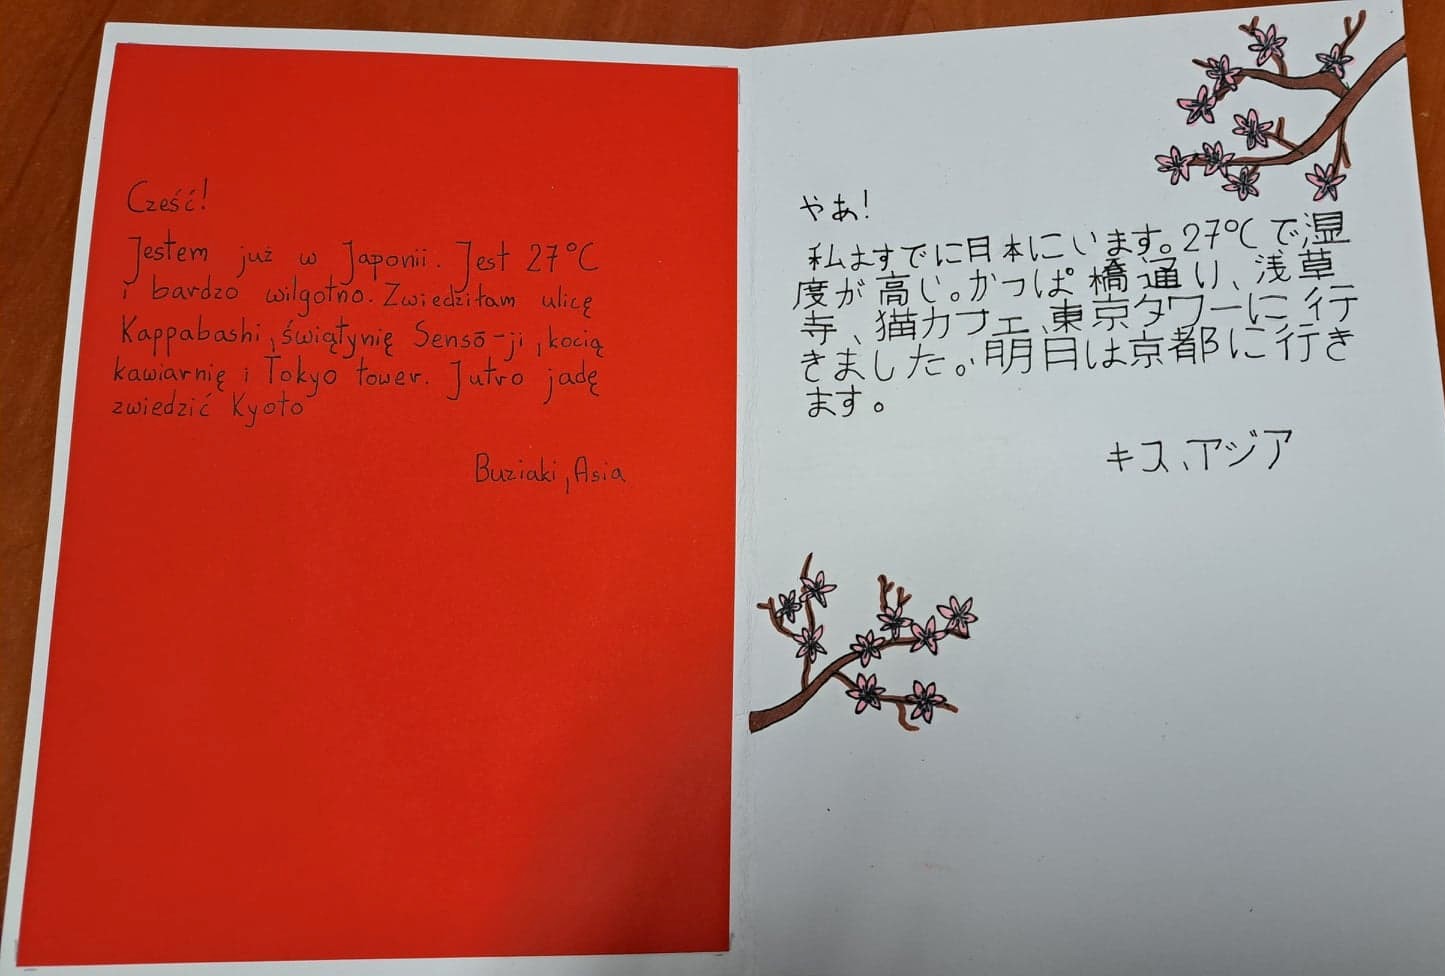 Cześć!
Jestem już w Japonii. Jest 27°C
i bardzo wilgotno. Zwiedziłam ulicę
Kappabashi, świątynię Sensō-ji, kocią
kawiarnię i Tokyo tower. Jutro jadę
zwiedzić Kyoto
Buziaki, Asia
やあ!
私はすでに日本にいます。27°Cで湿
度が高い。かっぱ橋通り、浅草
寺、猫カフェ、東京タワーに行
きました。明日は京都に行き
ます。
キス、アジア